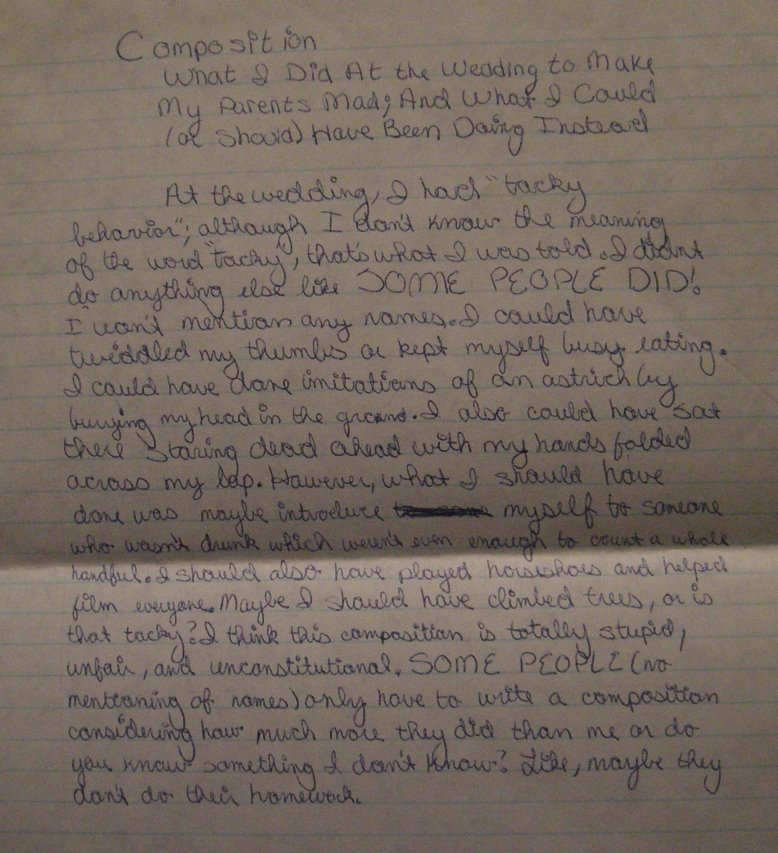 Composition
What I Did At the Wedding to Make
My Parents Mad; And What I Could
(or Should) Have Been Doing Instead
At the wedding, I had "tacky
behavior"; although I don't know the meaning
of the word "tacky", that's what I was told. I didn't
do anything else like SOME PEOPLE DID!
I won't mention any names. I could have
twiddled my thumbs or kept myself busy eating.
I could have done imitations of an ostrich by
burying my head in the ground. I also could have sat
there staring dead ahead with my hands folded
across my lap. However, what I should have
done was maybe introduce myself to someone
who wasn't drunk which weren't even enough to count a whole
handful. I should also have played horseshoes and helped
film everyone. Maybe I should have climbed trees, or is
that tacky? I think this composition is totally stupid,
unfair, and unconstitutional. SOME PEOPLE (no
mentioning of names) only have to write a composition
considering how much more they did than me or do
you know something I don't know? Like, maybe they
don't do their homework.